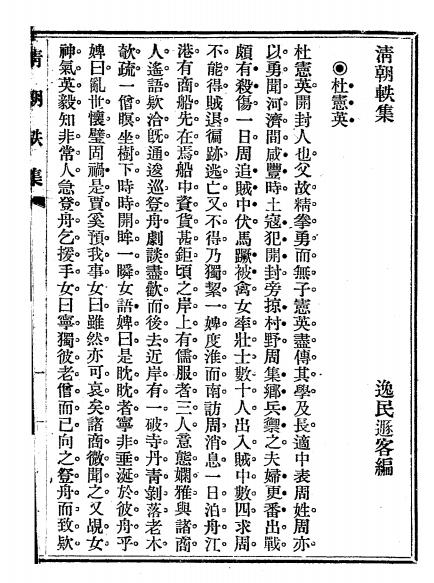 清朝軼集　逸民遯客編
◉杜憲英
杜憲英開封人也父故精拳勇而無子憲英盡傳其學及長適中表周姓周亦
以勇聞河濟間咸豐時土寇犯開封旁掠村野周集鄉兵禦之夫婦更番出戰
頗有殺傷一日周追賊中伏馬蹶被禽女率壯士數十人出入賊中數四求周
不能得賊退徧跡逃亡又不得乃獨絜一婢度淮而南訪周消息一日泊舟江
港有商船先在焉船中資貨甚鉅頃之岸上有儒服者三人意態嫻雅與諸商
人遙語欵洽旣通逡巡登舟劇談盡歡而後去近岸有一破寺丹青剝落老木
欹疏一僧瞑坐樹下時時開眸一瞬女語婢曰是眈眈者寧非垂涎於彼舟乎
婢曰亂世懷璧固禍是賈奚預我事女曰雖然亦可哀矣諸商微聞之又覘女
神氣英毅知非常人急登舟乞援手女曰寧獨彼老僧而已向之登舟而致欵
清朝軼集
一